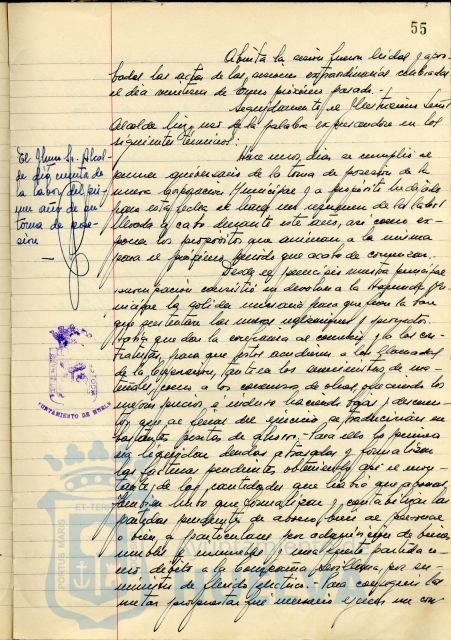 55
Abierta la sesión fueron leídas y apro-
badas las actas de las sesiones extraordinarias celebradas
el día veintiuno de enero próximo pasado.-
Seguidamente el Ilustrísimo Señor
Alcalde hizo uso de la palabra expresándose en los
siguientes términos:
El Ilmo Sr. Alcal-
de da cuenta de
la labor del pri-
mer año de su
toma de pose-
sión
Hace unos días se cumplió el
primer aniversario de la toma de posesión de la
nueva Corporación Municipal y a propósito he dejado
para esta fecha el hacer un resumen de la labor
llevada a cabo durante este año, así como ex-
poner los propósitos que animan a la misma
para el próximo período que acaba de comenzar.
Desde el principio nuestra principal
preocupación consistió en devolver a la Hacienda Mu-
nicipal la solidez necesaria para que fuera la base
que sustentan las nuevas realizaciones y proyectos.
Había que dar la confianza al comercio y a los con-
tratistas, para que éstos acudieran a las llamadas
de la Corporación, tanto en los suministros de ma-
teriales, como a los concursos de obras, ofreciendo los
mejores precios e incluso haciendo bajas y descuen-
tos, que al final del ejercicio se traducirían en
bastantes pesetas de ahorro. Para ello lo primero
fue legalizar deudas atrasadas y formalizar
las facturas pendientes, obteniendo así el mon-
tante de las cantidades que había que abonar.
También hubo que formalizar y contabilizar las
partidas pendientes de abono, bien al personal
o bien a particulares por adquisiciones de bienes
muebles e inmuebles y una fuerte partida co-
mo débito a la Compañía Sevillana, por su-
ministro de fluido eléctrico.- Para conseguir las
metas propuestas fue necesario ejercer un con-
AYUNTAMIENTO DE HUELVA
PORTUS MARIS
ET TERR